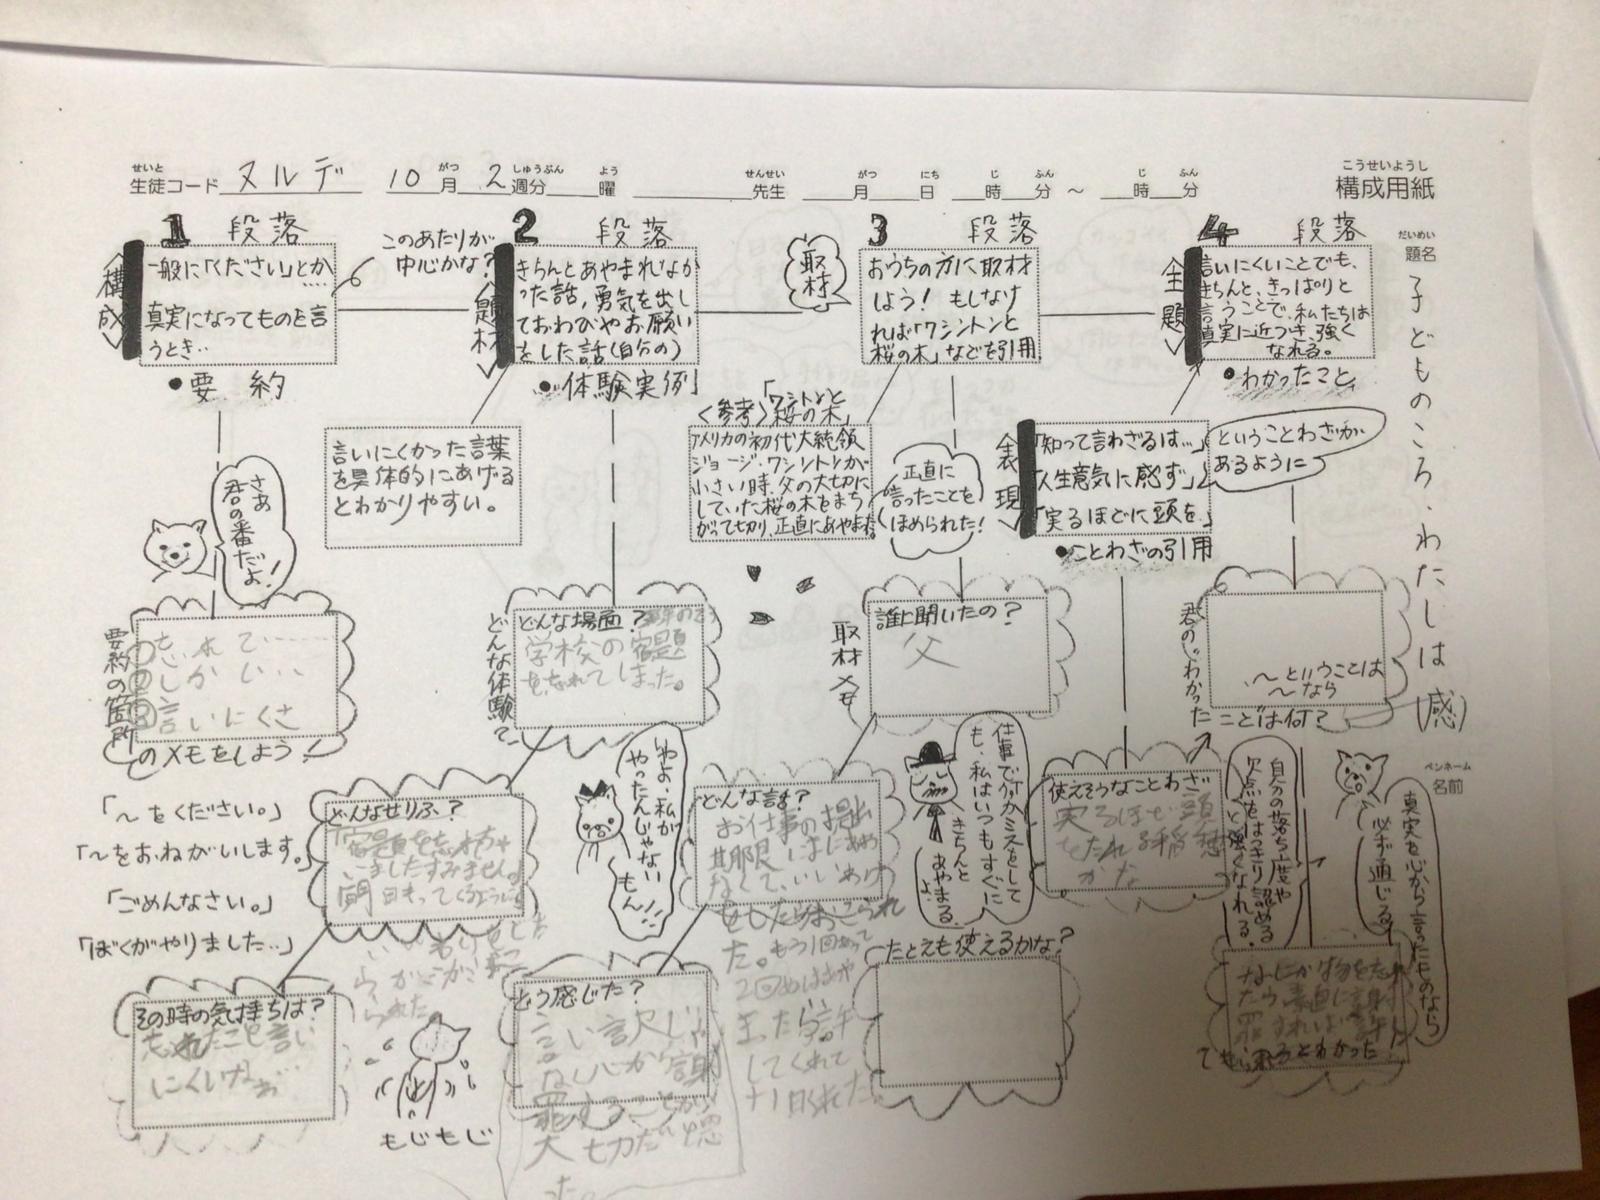 せいと
生徒コード ヌルデ 10 がつ 月 2 しゅうぶん 週分 よう 曜 せんせい 先生 がつ 月 にち 日 じ 時 ふん 分 ～ じ 時 ふん 分
こうせいようし
構成用紙
だいめい
題名
子どものころ、わたしは (感)
ペンネーム
名前
1 段落
構成
一般に「ください」とか
真実になってものを言
うとき‥
このあたりが
中心かな?
●要約
2 段落
題材
きちんとあやまれなか
った話，勇気を出し
ておわびやお願い
をした話(自分の)
●体験実例
取材
3 段落
おうちの方に取材
しよう! もしなけ
れば「ワシントンと
桜の木」などを引用
4 段落
主題
言いにくいことでも、
きちんと、きっぱりと
言うことで、私たちは
真実に近づき、強く
なれる。
●わかったこと
言いにくかった言葉
を具体的にあげる
とわかりやすい。
〈参考〉「ワシントンと
桜の木」
アメリカの初代大統領
ジョージ・ワシントンが
小さい時、父の大切に
していた桜の木をまち
がって切り、正直にあやまった。
正直に
言ったことを
ほめられた!
表現
「知って言わざるは…」
「人生意気に感ず」
「実るほどに頭を」
●ことわざの引用
ということわざが
あるように
さあ
君の番だよ!
要約の箇所
のメモをしよう
③言いにくさ
どんな体験?
どんな場面?
学校の宿題
をわすれてしまった。
取材メモ
誰に聞いたの?
父
君の「わかった
ことは何?
～ということは
～なら
「～をください。」
「～をおねがいします。」
「ごめんなさい。」
「ぼくがやりました‥」
どんなせりふ?
わよ、私が
やったんじゃない
もん!!
どんな話?
お仕事の提出
期限
仕事で何かミスをして
も、私はいつもすぐに
きちんと
あやまる
よ。
使えそうなことわざ
実るほど頭
をたれる稲穂
かな
自分の落ち度や
欠点をはっきり認める
と強くなれる。
真実を心から言ったものなら
必ず通じる!
その時の気持ちは?
忘れたこと言い
にくいなぁ
もじもじ
どう感じた?
言い訳じゃ
なく心から謝
罪することが
大切だと思
った。
たとえも使えるかな?